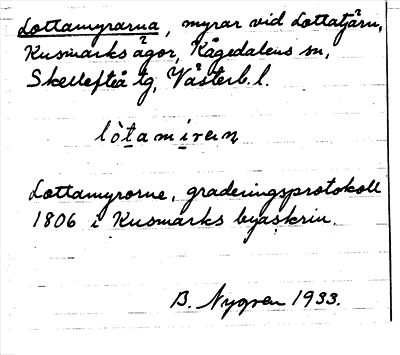 Lottamyrarna, myrar vid Lottatjärn,
Kusmarks ägor, Kågedalens sn,
Skellefteå tg, Västerb. l.
lòtamiran
Lottamyrorne, graderingsprotokoll
1806 i Kusmarks byaskrin.
B. Nygren 1933.